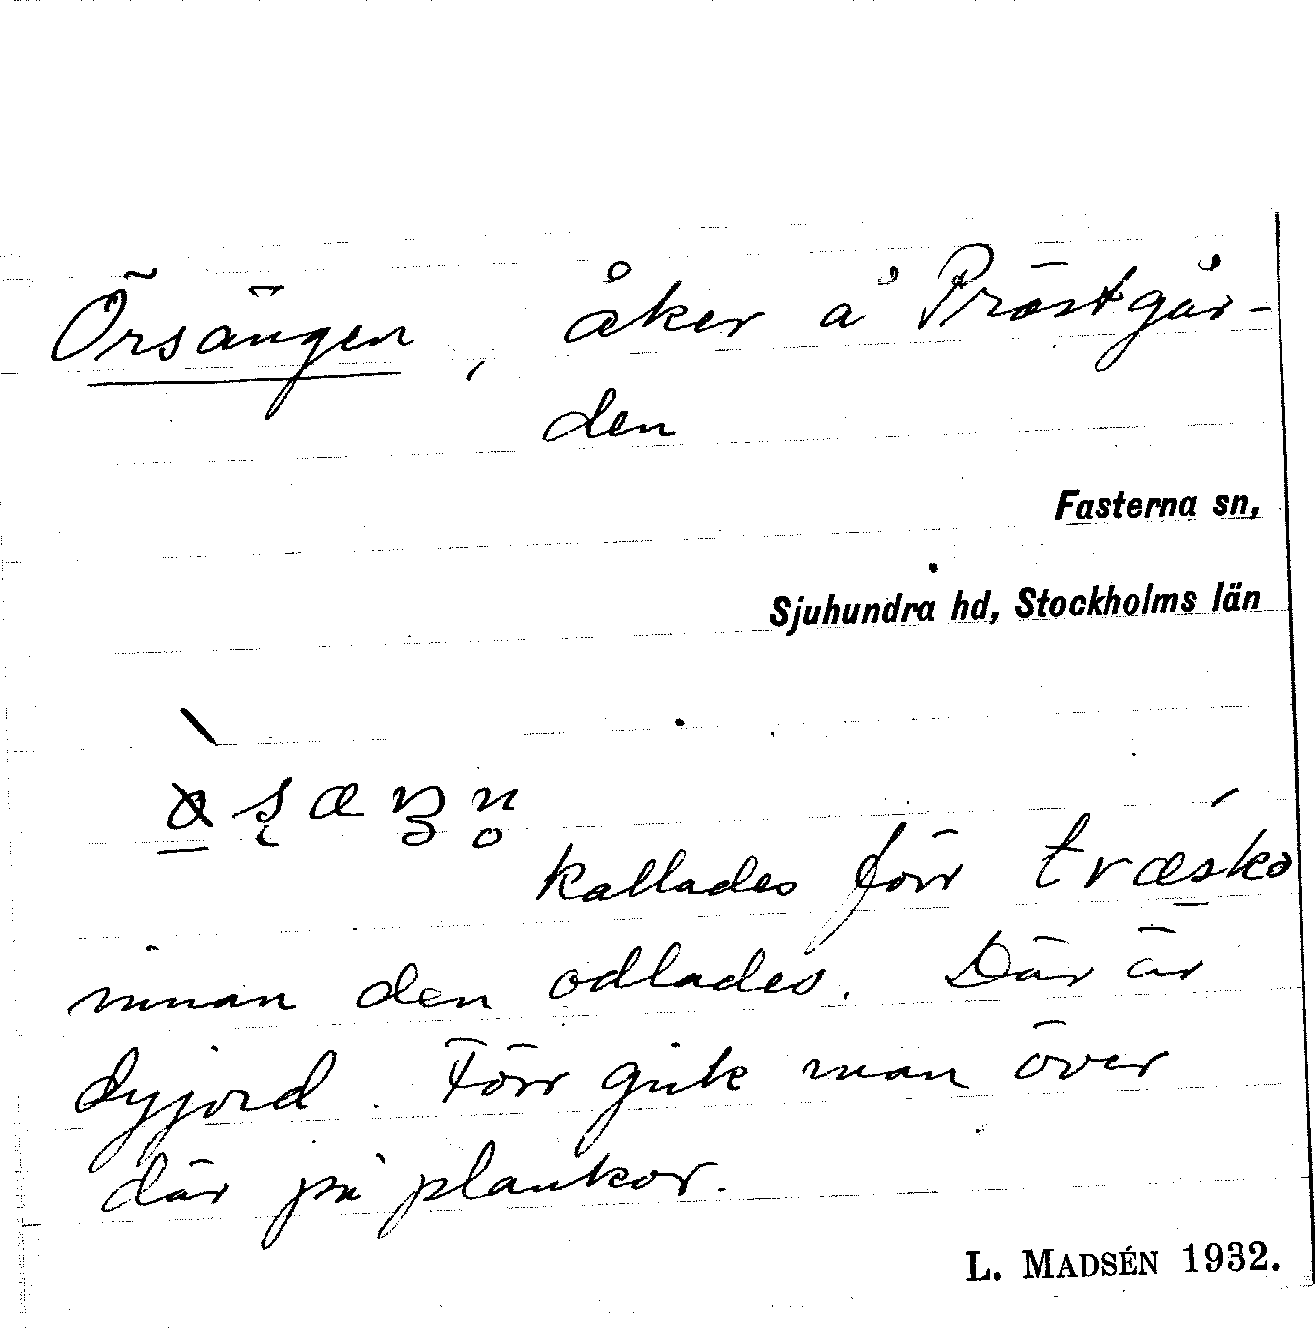 Örsängen, åker å Prästgår-
den
Fasterna sn,
Sjuhundra hd, Stockholms län
kallades förr træskə
innan den odlades. Där är
dyjord. Förr gick man över
där på plankor.
L. MADSÉN 1932.